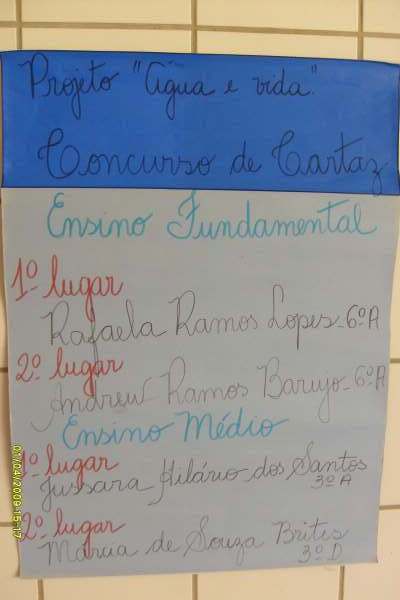 Projeto "Água e vida".
Concurso de Cartaz
Ensino Fundamental
1º lugar
Rafaela Ramos Lopes - 6º A
2º lugar
Andrew Ramos Baruyo - 6º A
Ensino Médio
1º lugar
Jussara Hilário dos Santos
3º A
2º lugar
Márcia de Souza Brites
3º D
01/04/2009 15:17